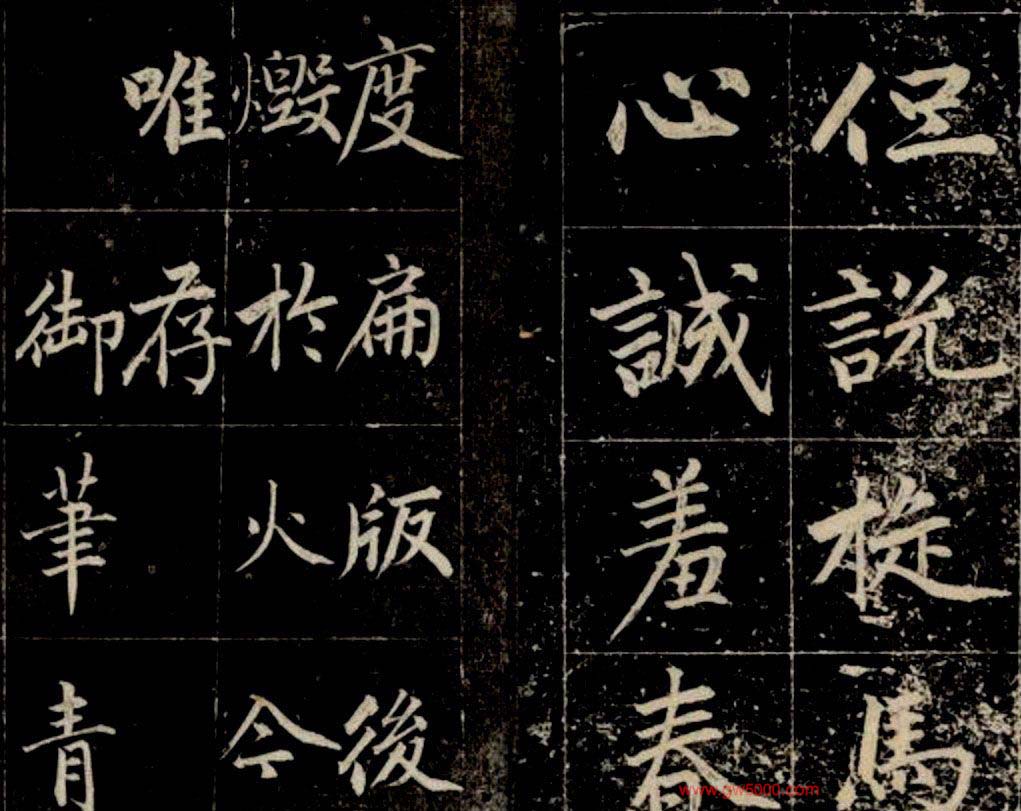 但說旋馬
心誠羞春
度扁版後
燬於火今
唯存
御筆青
www.gw5000.com